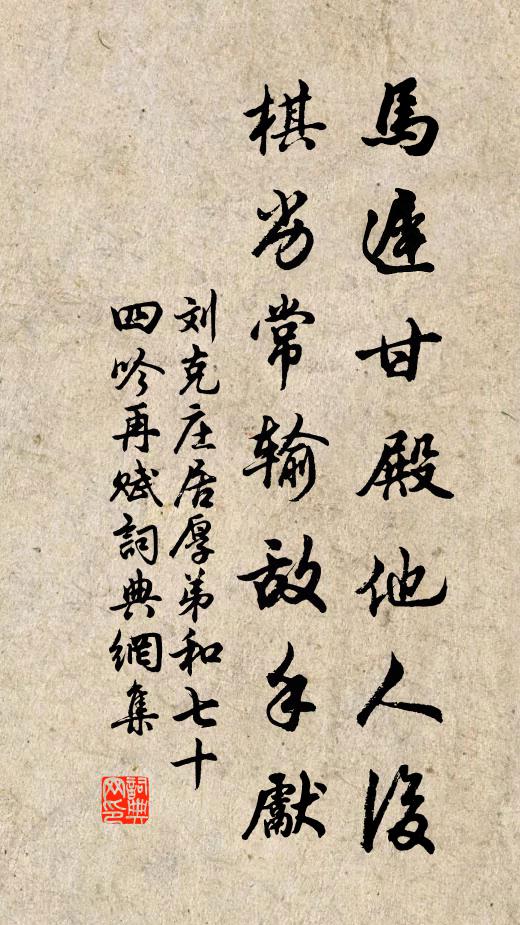 馬遲甘殿他人後
棋劣常輸敌手獻
刘克庄居厚弟和七十
四吟再赋詞典網集
詞典
网印